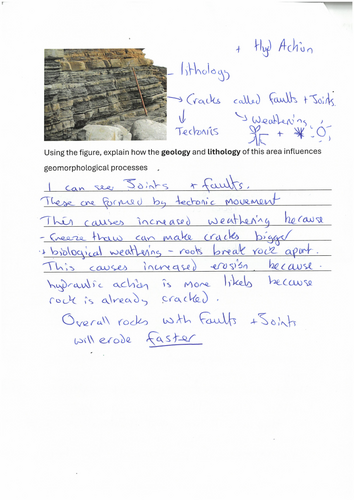 + Hyd Action
lithology
Cracks called Faults + Joints
Tectonics
Weathering
+
Using the figure, explain how the geology and lithology of this area influences
geomorphological processes .
I can see Joints + faults.
These are formed by tectonic movement
This causes increased weathering because
- freeze thaw can make cracks bigger
- biological weathering - roots break rock apart.
This causes increased erosion because.
hydraulic action is more likely because
rock is already cracked.
Overall rocks with Faults + Joints
will erode faster